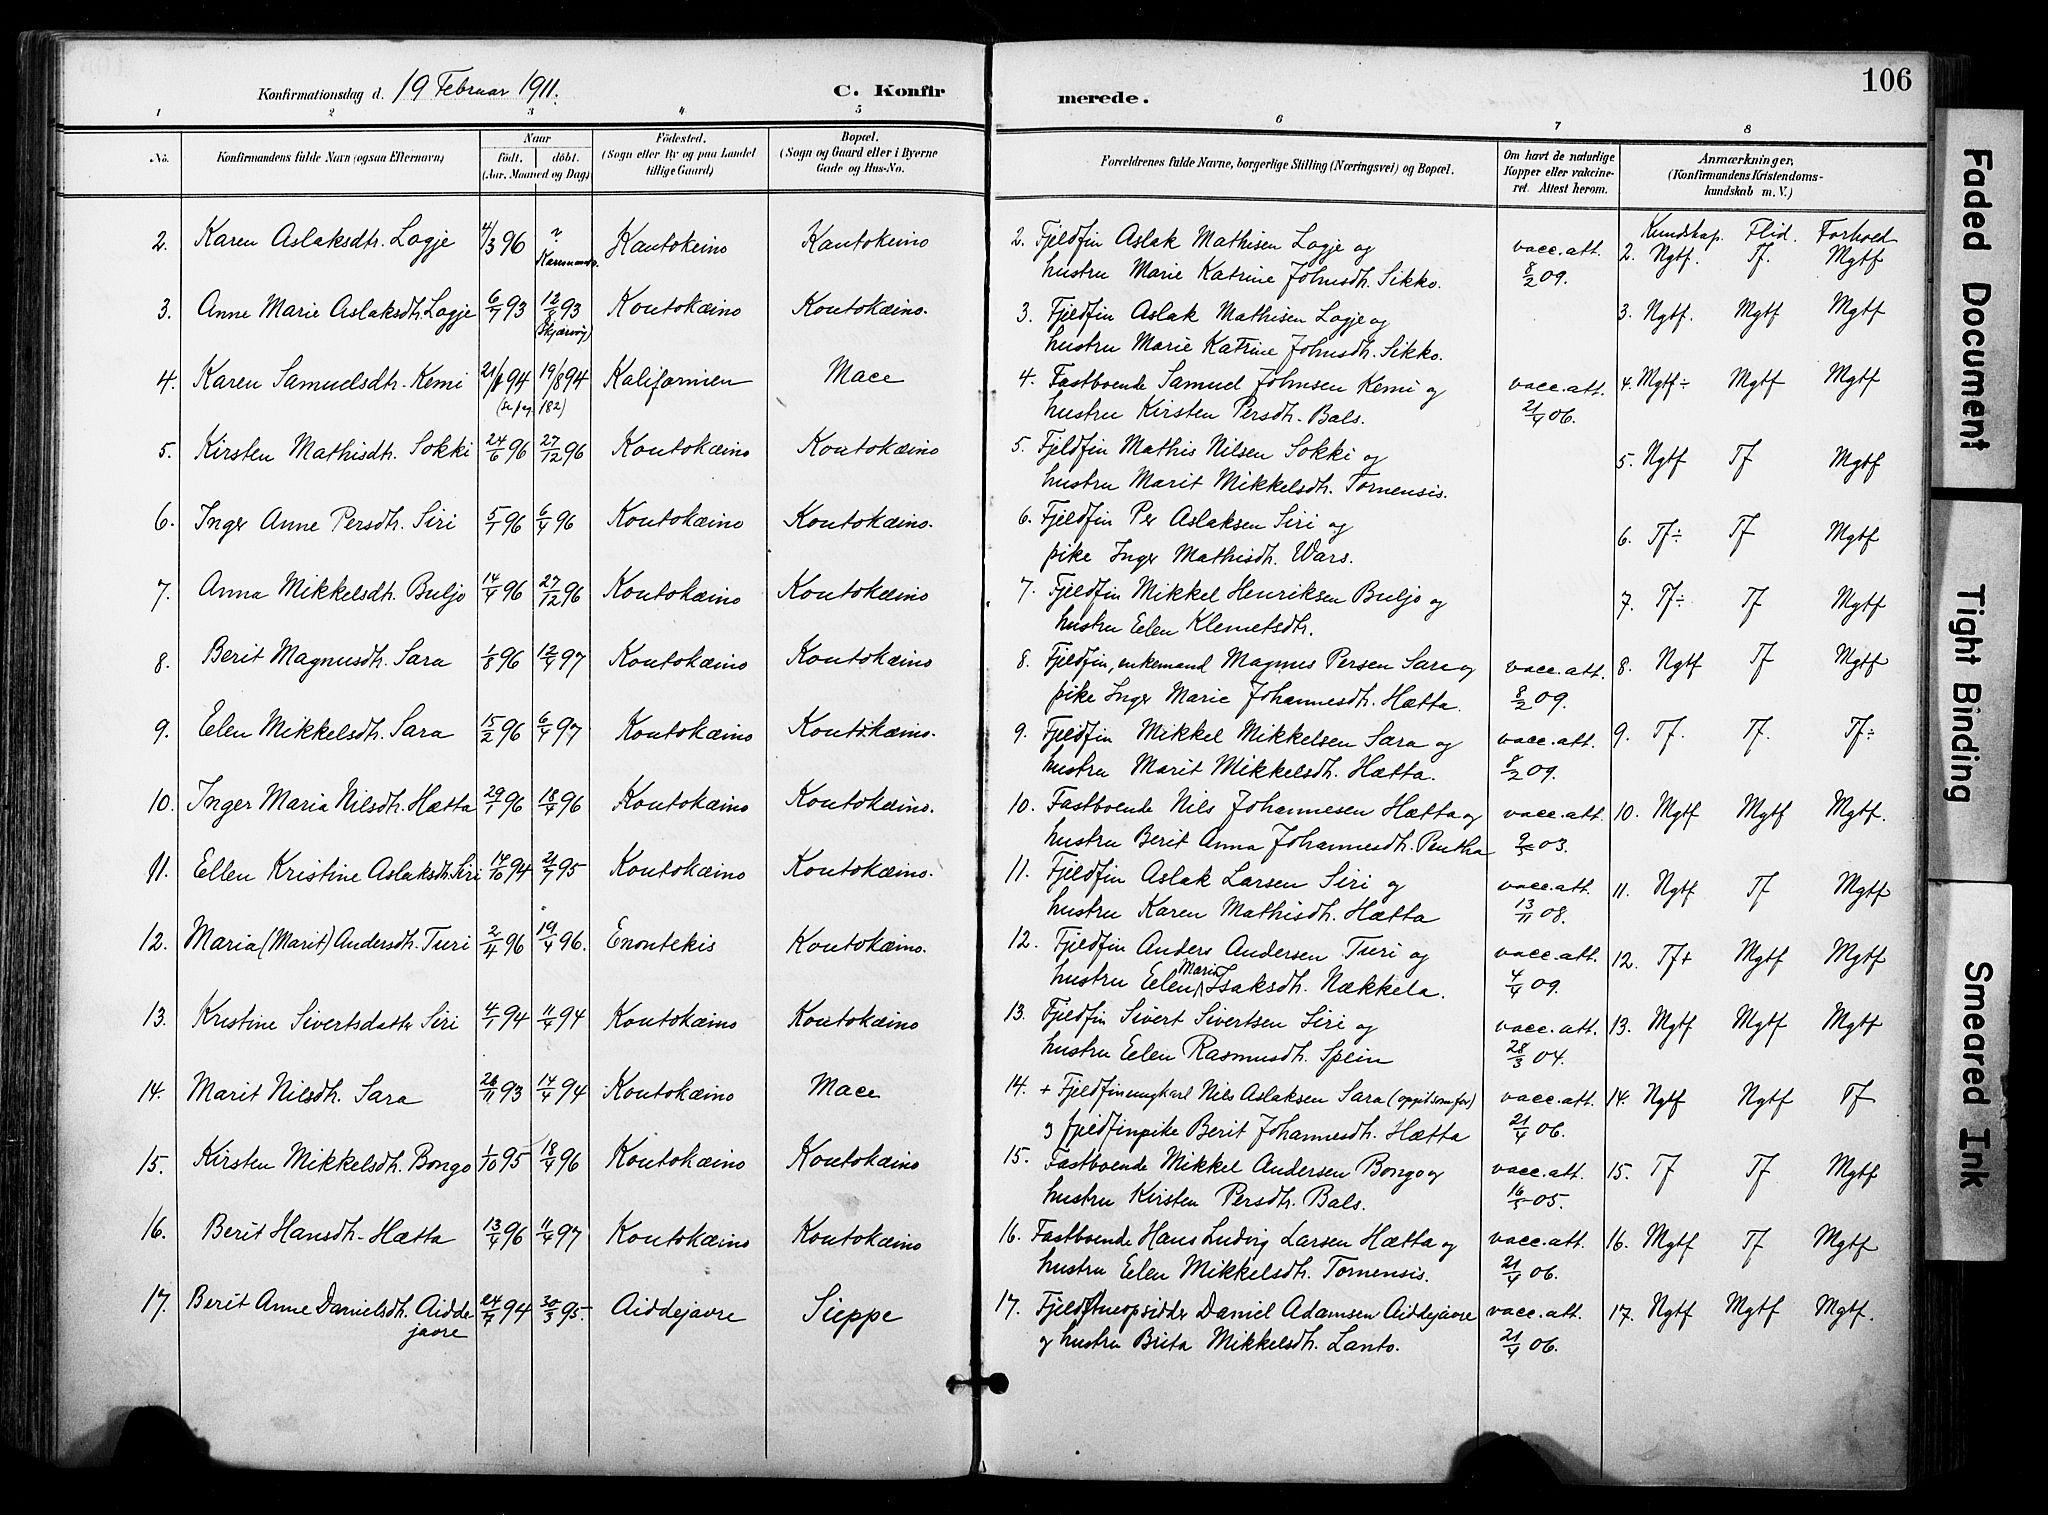 Konfirmationsdag d. 19 Februar 1911. C. Konfirmerede. 106
1 2 3 4 5 6 7 8
No. Konfirmandens fulde Navn (ogsaa Efternavn) Naar født. døbt. (Aar, Maaned og Dag) Fødested. (Sogn eller By og paa Landet tillige Gaard) Bopæl. (Sogn og Gaard eller i Byerne Gade og Hus-No. Forældrenes fulde Navne, borgerlige Stilling (Næringsvei) og Bopæl. Om havt de naturlige Kopper eller vakcineret. Attest herom. Anmærkninger, (Konfirmandens Kristendomskundskab m. V.)
Kundskap. Flid. Forhold
2. Karen Aslaksdtr. Logje 4/3 96 Kautokeino Kautokeino 2. Fjeldfin Aslak Mathisen Logje og vacc. att. 2. Ngtf. Tf. Mgtf
hustru Marie Katrine Johnsdh. Sikko. 8/2 09.
3. Anne Marie Aslaksdh. Logje 6/7 93 12/8 93 Koutokæino Koutokæino. 3. Fjeldfin Aslak Mathisen Logje og 3. Ngtf. Mgtf Mgtf
(Skjærvøy) hustru Marie Katrine Johnsdh. Sikko.
4. Karen Samuelsdtr. Kemi 19/8 94 Kalifornien Mace 4. Fastboende Samuel Johnsen Kemi og vacc. att. 4. Mgtf÷ Mgtf Mgtf
(se pag 182) hustru Kirsten Persdh. Bals. 21/4 06.
5. Kirsten Mathisdtr. Sokki 24/6 96 27/12 96 Koutokæino Koutokæino 5. Fjeldfin Mathis Nilsen Sokki og 5. Ngtf Tf Mgtf
hustru Marit Mikkelsdh. Tornensis.
6. Inger Anne Persdtr. Siri 5/1 96 6/4 96 Koutokæino Koutokæino. 6. Fjeldfin Per Aslaksen Siri og 6. Tf÷ Tf Mgtf
pike Inger Mathisdh. Wars.
7. Anna Mikkelsdtr. Buljo 14/4 96 27/12 96 Koutokæino Koutokæino 7. Fjeldfin Mikkel Henriksen Buljo og 7. Tf÷ Tf Mgtf
hustru Elen Klemetsdtr.
8. Berit Magnusdh. Sara 1/8 96 12/4 97 Koutokæino Koutokæino 8. Fjeldfin, enkemand Magnus Persen Sara og vacc. att. 8. Ngtf Tf Mgtf
pike Inger Marie Johannesdh. Hætta. 8/2 09.
9. Elen Mikkelsdtr. Sara 15/2 96 6/4 97 Koutokæino Koutokæino. 9. Fjeldfin Mikkel Mikkelsen Sara og vacc. att. 9. Tf. Tf. Tf÷
hustru Marit Mikkelsdh. Hætta. 8/2 09.
10. Inger Maria Nilsdh. Hætta 29/1 96 18/4 96 Koutokæino Koutokæino. 10. Fastboende Nils Johannesen Hætta og vacc. att. 10. Mgtf Mgtf Mgtf.
hustru Berit Anna Johannesdh. Pentha 9/5 03.
11. Ellen Kristine Aslaksdh. Siri 14/10 94 95 Koutokæino Koutokæino. 11. Fjeldfin Aslak Larsen Siri og vacc. att. 11. Ngtf Tf Mgtf
hustru Karen Mathisdh. Hætta 13/11 08.
12. Maria (Marit) Andersdh. Turi 2/4 96 19/4 96. Enontekis Koutokæino. 12. Fjeldfin Anders Andersen Turi og vacc. att. 12. Tf+ Mgtf Mgtf
hustru Elen Marie Isaksdh. Nækkela. 4/4 09.
13. Kristine Sivertsdatter Siri 4/1 94 11/4 94 Koutokæino Koutokæino 13. Fjeldfin Sivert Sivertsen Siri og vacc. att. 13. Mgtf Mgtf Mgtf
hustru Elen Rasmusdh. Spein 28/3 04.
14. Marit Nilsdh. Sara 26/11 93 14/4 94 Koutokæino Mace 14. + Fjeldfinungkarl Nils Aslaksen Sara (opgit som far) vacc. att. 14. Ngtf Ngtf Tf
og fjeldfinpike Berit Johannesdh. Hætta 21/4 06.
15. Kirsten Mikkelsdh. Bongo 1/10 95 18/4 96 Koutokæino Koutokæino 15. Fastboende Mikkel Andersen Bongo og vacc. att. 15. Tf Tf Mgtf
hustru Kirsten Persdtr. Bals. 16/5 05.
16. Berit Hansdh. Hætta 13/4 96 11/4 97 Koutokæino Koutokæino 16. Fastboende Hans Ludvig Larsen Hætta og vacc. att. 16. Mgtf Tf Mgtf
hustru Elen Mikkelsdtr. Tornensis. 21/4 06.
17. Berit Anne Danielsdh. Aidde- 94 30/3 95 Aiddejavre Sieppe 17. Daniel Adamsen Aiddejavre vacc. att. 17. Ngtf Mgtf Mgtf.
javre og hustru Brita Mikkelsdh. Lanto. 21/4 06.
Faded Document
Tight Binding
Smeared Ink